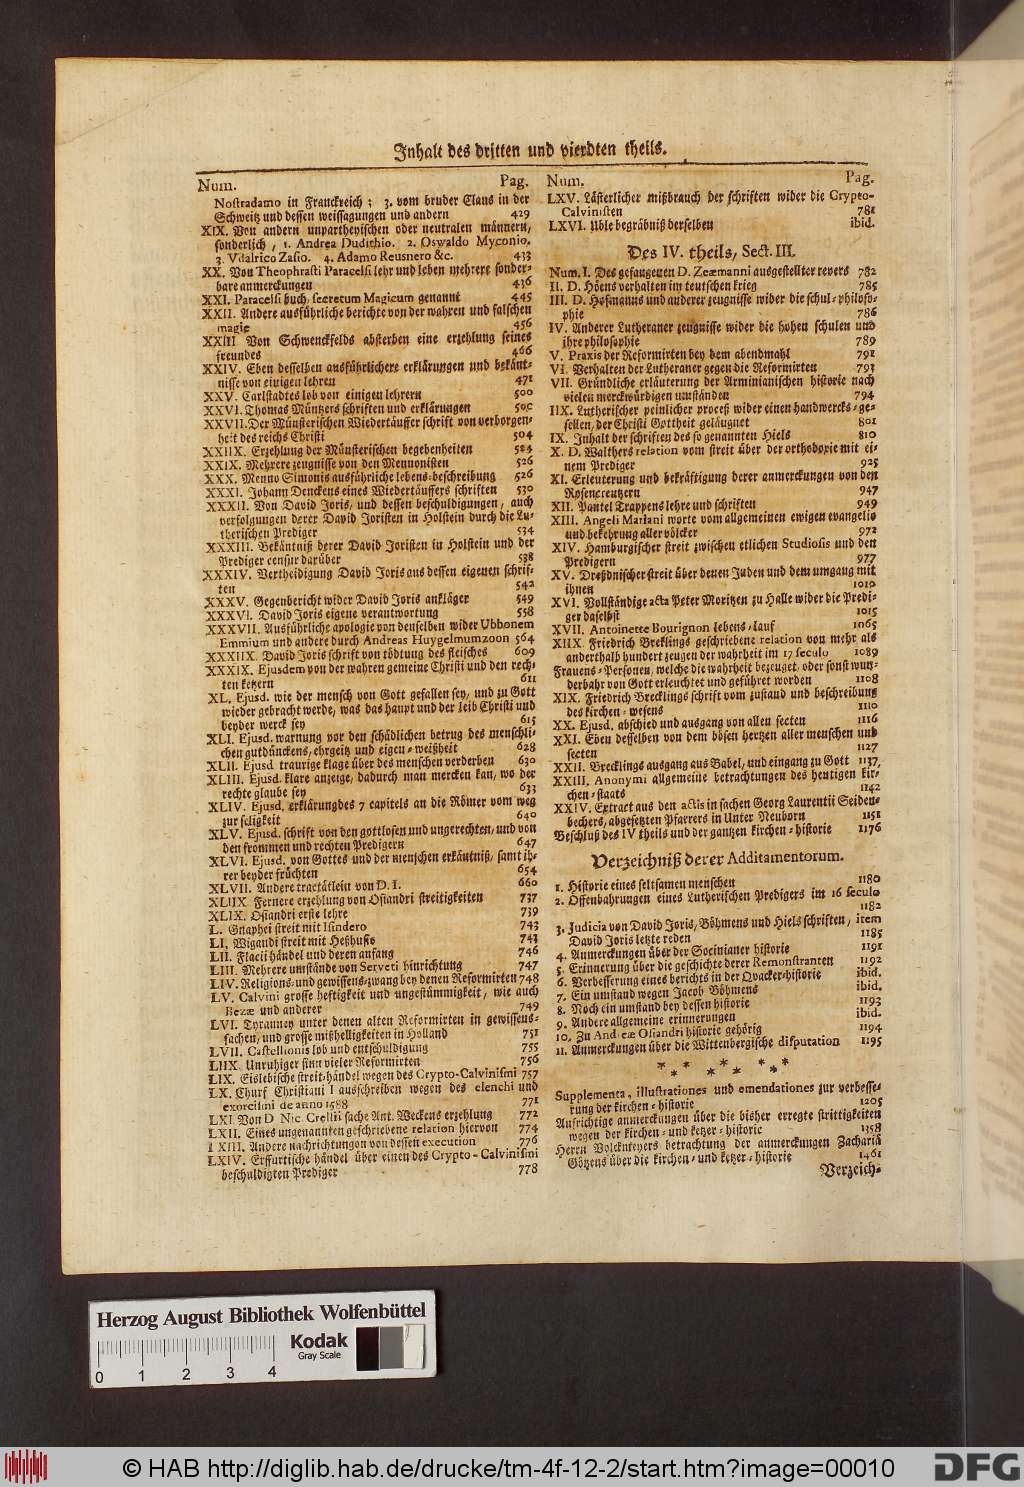 Inhalt des dritten und vierdten theils.
Num. Pag.
Nostradamo in Franckreich; 3. vom bruder Claus in der
Schweitz und dessen weissagungen und andern 429
XIX. Von andern unpartheyischen oder neutralen männern,
sonderlich, 1. Andrea Dudithio. 2. Oswaldo Myconio.
3. Vdalrico Zasio. 4. Adamo Reusnero &c. 433
XX. Von Theophrasti Paracelsi lehr und leben mehrere sonder-
bare anmerckungen 436
XXI. Paracelsi buch, secretum Magicum genannt 445
XXII. Andere ausführliche berichte von der wahren und falschen
magie 456
XXIII Von Schwenckfelds absterben eine erzehlung seines
freundes 466
XXIV. Eben desselben ausführlichere erklärungen und bekänt-
nisse von einigen lehren 471
XXV. Carlstadtes lob von einigen lehrern 500
XXVI. Thomas Müntzers schriften und erklärungen
XXVII. Der Münsterischen Wiedertäuffer schrift von verborgen-
heit des reichs Christi 504
XXIIX. Erzehlung der Münsterischen begebenheiten
XXIX. Mehrere zeugnisse von den Mennonisten 526
XXX. Menno Simonis ausführliche lebens-beschreibung 526
XXXI. Johann Denckens eines Wiedertäuffers schriften 530
XXXII. Von David Joris, und dessen beschuldigungen, auch
verfolgungen derer David Joristen in Holstein durch die Lu-
therischen Prediger 534
XXXIII. Bekäntniß derer David Joristen in Holstein und der
Prediger censur darüber 538
XXXIV. Vertheidigung David Joris aus dessen eigenen schrif-
ten 542
XXXV. Gegenbericht wider David Joris ankläger 549
XXXVI. David Joris eigene verantwortung 558
XXXVII. Ausführliche apologie von denselben wider Ubbonem
Emmium und andere durch Andreas Huygelmumzoon 564
XXXIIX. David Joris schrift von tödtung des fleisches 609
XXXIX. Ejusdem von der wahren gemeine Christi und den rech-
ten ketzern 611
XL. Ejusd. wie der mensch von Gott gefallen sey, und zu Gott
wieder gebracht werde, was das haupt und der leib Christi und
beyder werck sey 615
XLI. Ejusd. warnung vor den schädlichen betrug des menschli-
chen gutdünckens, ehrgeitz und eigen-weißheit 628
XLII. Ejusd traurige klage über des menschen verderben 630
XLIII. Ejusd. klare anzeige, dadurch man mercken kan, wo der
rechte glaube sey 633
XLIV. Ejusd. erklärung des 7 capitels an die Römer vom weg
zur seligkeit 640
XLV. Ejusd. schrift von den gottlosen und ungerechten, und von
den frommen und rechten Predigern 647
XLVI. Ejusd. von Gottes und der menschen erkäntniß, samt ih-
rer beyder früchten 654
XLVII. Andere tractätlein von D. I. 660
XLIIX. Fernere erzehlung von Osiandri streitigkeiten 737
XLIX. Osiandri erste lehre 739
L. Gnaphei streit mit Isindero 743
LI. Wigandi streit mit Heßhusio 743
LII. Flacii händel und deren anfang 746
LIII. Mehrere umstände von Serveti hinrichtung 747
LIV. Religions- und gewissens-zwang bey denen Reformirten 748
LV. Calvini grosse heftigkeit und ungestümmigkeit, wie auch
Bezæ und anderer 749
LVI. Tyranney unter denen alten Reformirten in gewissens-
sachen, und grosse mißhelligkeiten in Holland 751
LVII. Castellionis lob und entschuldigung 755
LIIX. Unruhiger sinn vieler Reformirten 756
LIX. Eislebische streit-händel wegen des Crypto-Calvinismi 757
LX. Churf Christiani I ausschreiben wegen des elenchi und
exorcismi de anno 1588 771
LXI. Von D. Nic. Crellii sache Ant. Weckens erzehlung 772
LXII. Eines ungenannten geschriebene relation hiervon 774
LXIII. Andere nachrichtungen von dessen execution 776
LXIV. Erffurtische händel über einen des Crypto-Calvinismi
beschuldigten Prediger 778
Num. Pag.
LXV. Lästerlicher mißbrauch der schriften wider die Crypto-
Calvinisten 781
LXVI. Uble begräbniß derselben ibid.
Des IV. theils, Sect. III.
Num. I. Des gefangenen D. Zeæmanni ausgestellter revers 782
II. D. Höens verhalten im teutschen krieg 785
III. D. Hofmanns und anderer zeugnisse wider die schul-philoso-
phie 786
IV. Anderer Lutheraner zeugnisse wider die hohen schulen und
ihre philosophie 789
V. Praxis der Reformirten bey dem abendmahl 791
VI. Verhalten der Lutheraner gegen die Reformirten 793
VII. Gründliche erläuterung der Arminianischen historie nach
vielen merckwürdigen umständen 794
IIX. Lutherischer peinlicher proceß wider einen handwercks-ge-
sellen, der Christi Gottheit geläugnet 801
IX. Inhalt der schriften des so genannten Hiels 810
X. D. Walthers relation vom streit über der orthodoxie mit ei-
nem Prediger 925
XI. Erleuterung und bekräftigung derer anmerckungen von den
Rosencreutzern 947
XII. Pantel Trappens lehre und schriften 949
XIII. Angeli Mariani worte vom allgemeinen ewigen evangelio
und bekehrung aller völcker 972
XIV. Hamburgischer streit zwischen etlichen Studiosis und den
Predigern 977
XV. Dreßdnischer streit über denen Juden und dem umgang mit
ihnen 1010
XVI. Vollständige acta Peter Moritzen zu Halle wider die Predi-
ger daselbst 1015
XVII. Antoinette Bourignon lebens-lauf 1065
XIIX. Friedrich Brecklings geschriebene relation von mehr als
anderthalb hundert zeugen der wahrheit im 17 seculo 1089
Frauens-Personen, welche die wahrheit bezeuget, oder sonst wun-
derbahr von Gott erleuchtet und geführet worden 1108
XIX. Friedrich Brecklings schrift vom zustand und beschreibung
des kirchen-wesens 1110
XX. Ejusd. abschied und ausgang von allen secten 1116
XXI. Eben desselben von dem bösen hertzen aller menschen und
secten 1127
XXII. Brecklings ausgang aus Babel, und eingang zu Gott 1137
XXIII. Anonymi allgemeine betrachtungen des heutigen kir-
chen-staats 1142
XXIV. Extract aus den actis in sachen Georg Laurentii Seiden-
bechers, abgesetzten Pfarrers in Unter Neuborn 1151
Beschluß des IV theils und der gantzen kirchen-historie 1176
Verzeichniß derer Additamentorum.
1. Historie eines seltsamen menschen 1180
2. Offenbahrungen eines Lutherischen Predigers im 16 seculo
1182
3. Judicia von David Joris, Böhmens und Hiels schriften, item
David Joris letzte reden 1185
4. Anmerckungen über der Socinianer historie 1191
5. Erinnerung über die geschichte derer Remonstranten 1192
6. Verbesserung eines berichts in der Quacker-historie ibid.
7. Ein umstand wegen Jacob Böhmens ibid.
8. Noch ein umstand bey dessen historie 1193
9. Andere allgemeine erinnerungen ibid.
10. Zu Andreæ Osiandri historie gehörig 1194
11. Anmerckungen über die Wittenbergische disputation 1195
* * * * * * *
Supplementa, illustrationes und emendationes zur verbesse-
rung der kirchen-historie 1205
Aufrichtige anmerckungen über die bisher erregte strittigkeiten
wegen der kirchen- und ketzer-historie 1358
Herrn Volckneyers betrachtung der anmerckungen Zachariä
Götzens über die kirchen- und ketzer-historie 1461
Verzeich-
Herzog August Bibliothek Wolfenbüttel
Kodak
Gray Scale
0 1 2 3 4
© HAB http://diglib.hab.de/drucke/tm-4f-12-2/start.htm?image=00010
DFG